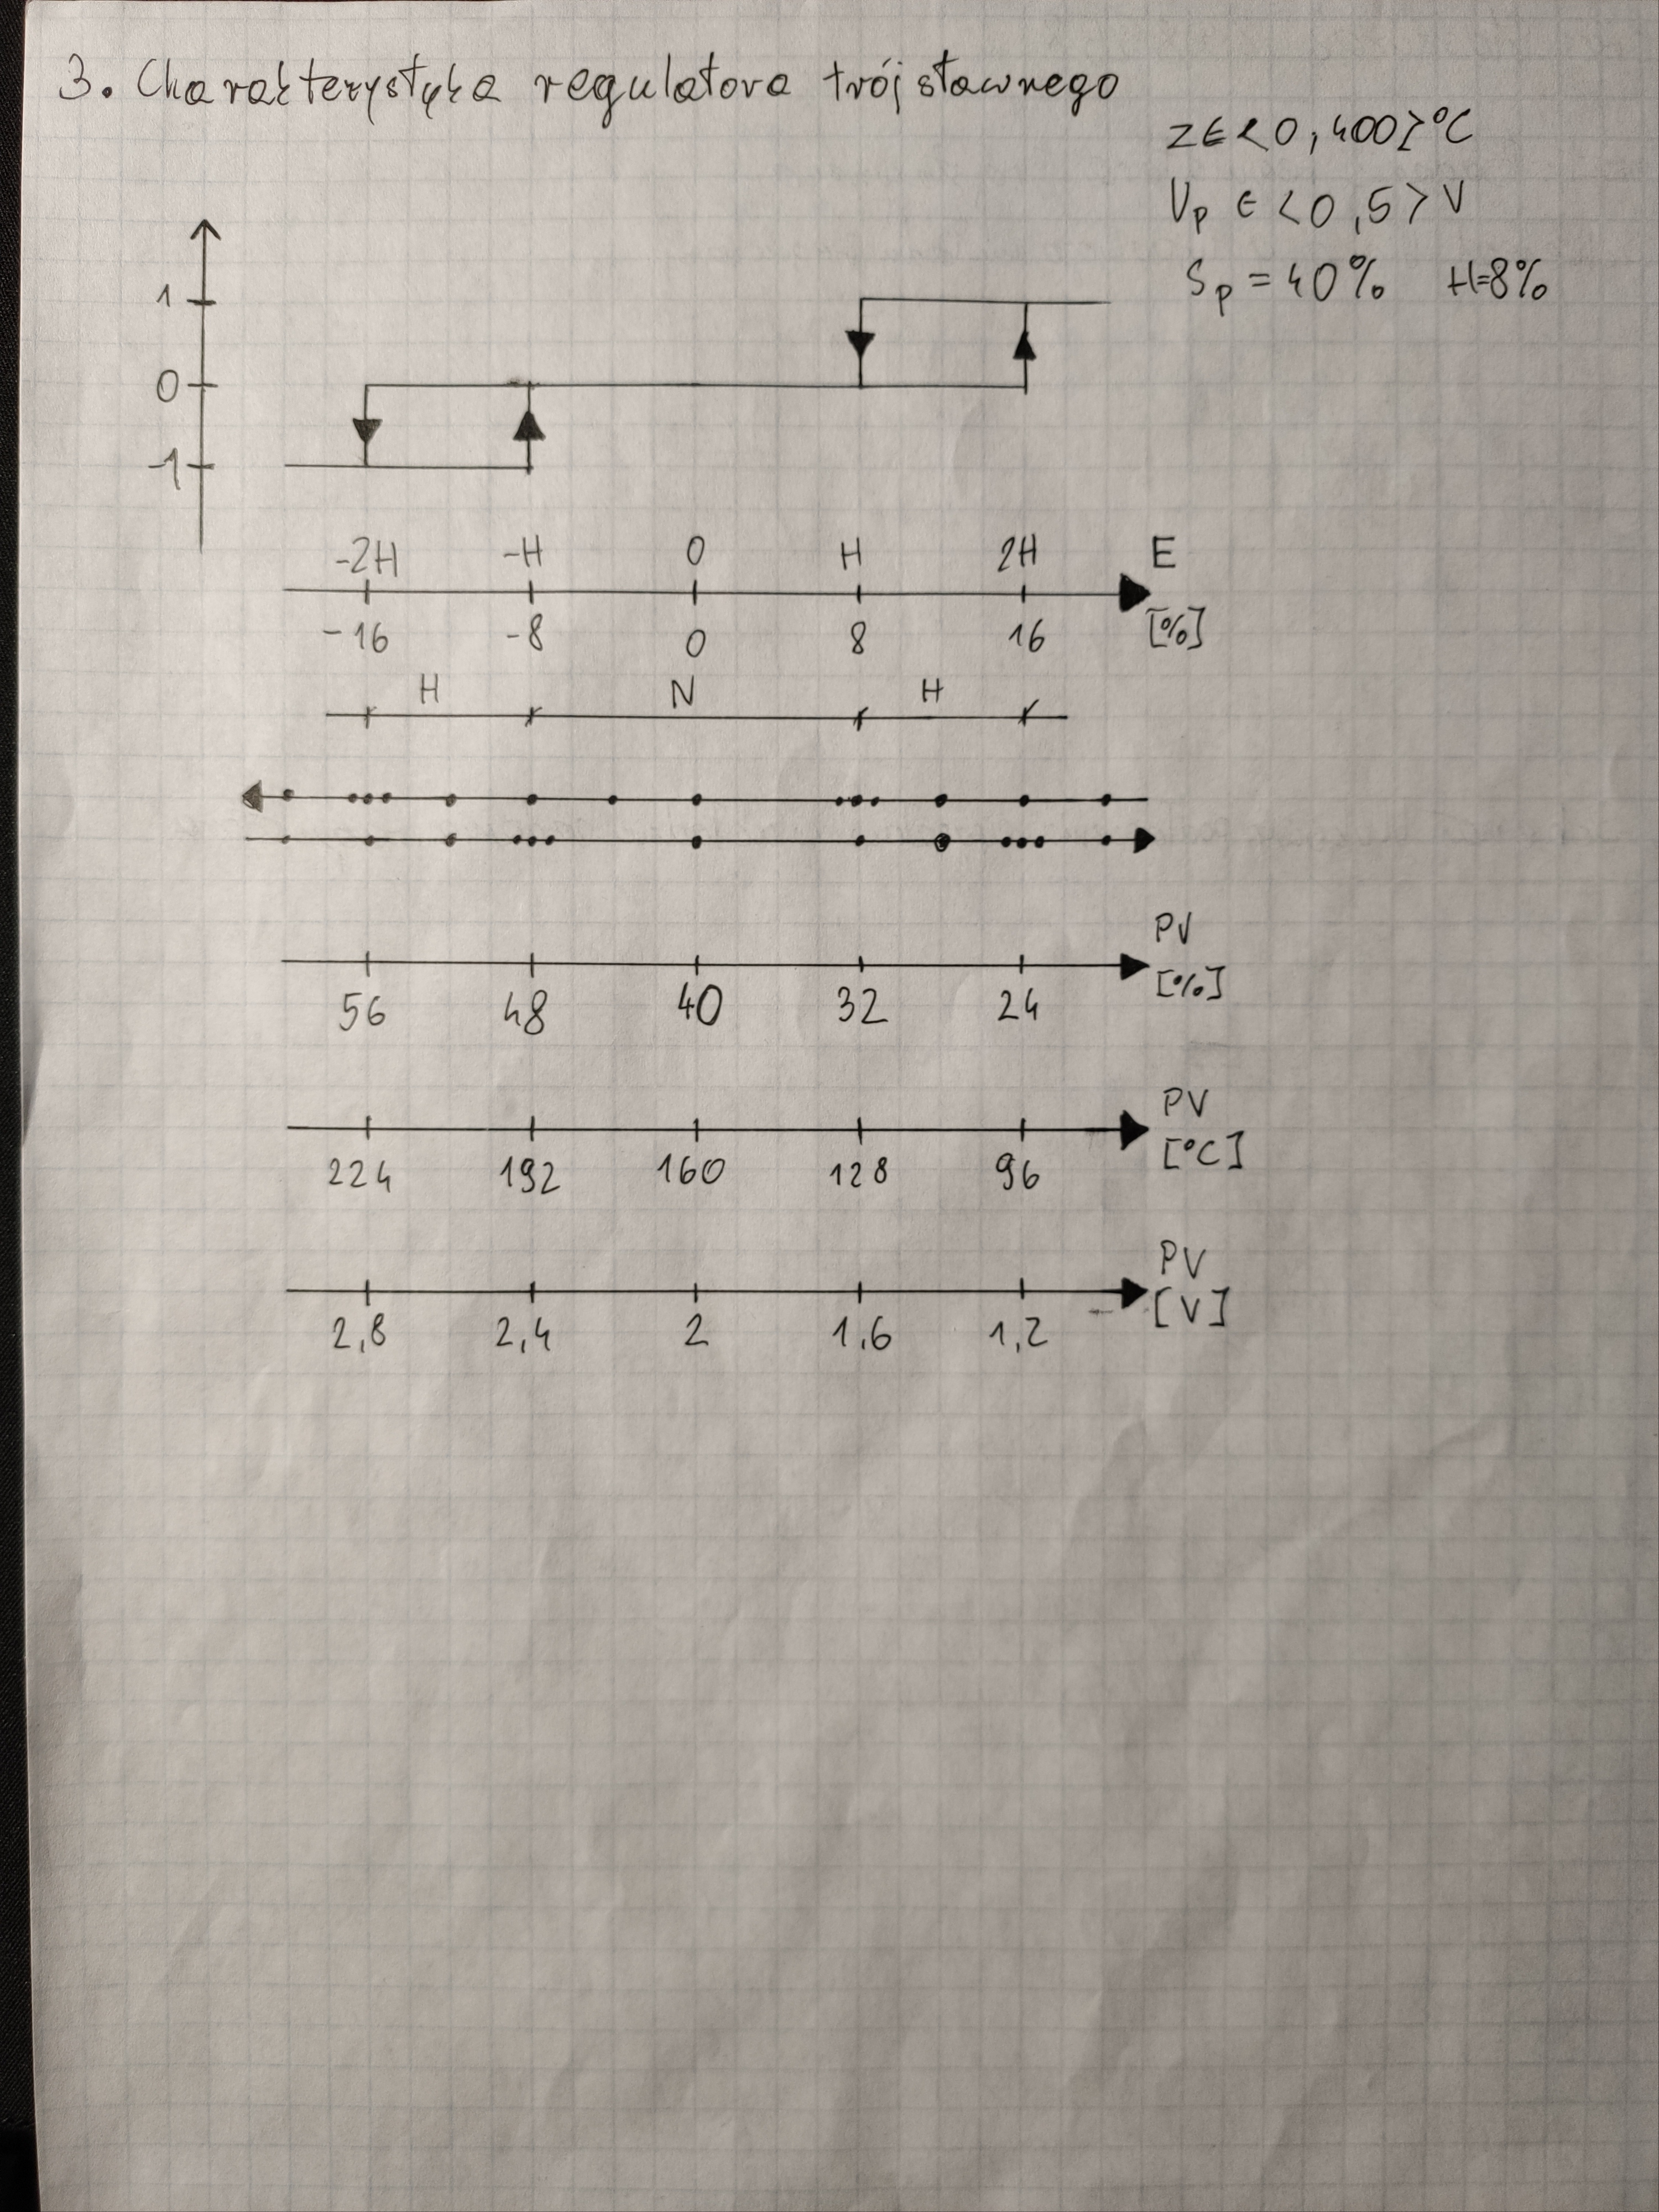 3. Charakterystyka regulatora trójstawnego
Z∈<0,400>°C
Up ∈ <0,5> V
Sp = 40% H=8%
1
0
-1
-2H -H 0 H 2H E
-16 -8 0 8 16 [%]
H N H
PV
56 48 40 32 24 [%]
PV
224 192 160 128 96 [°C]
PV
2,8 2,4 2 1,6 1,2 [V]